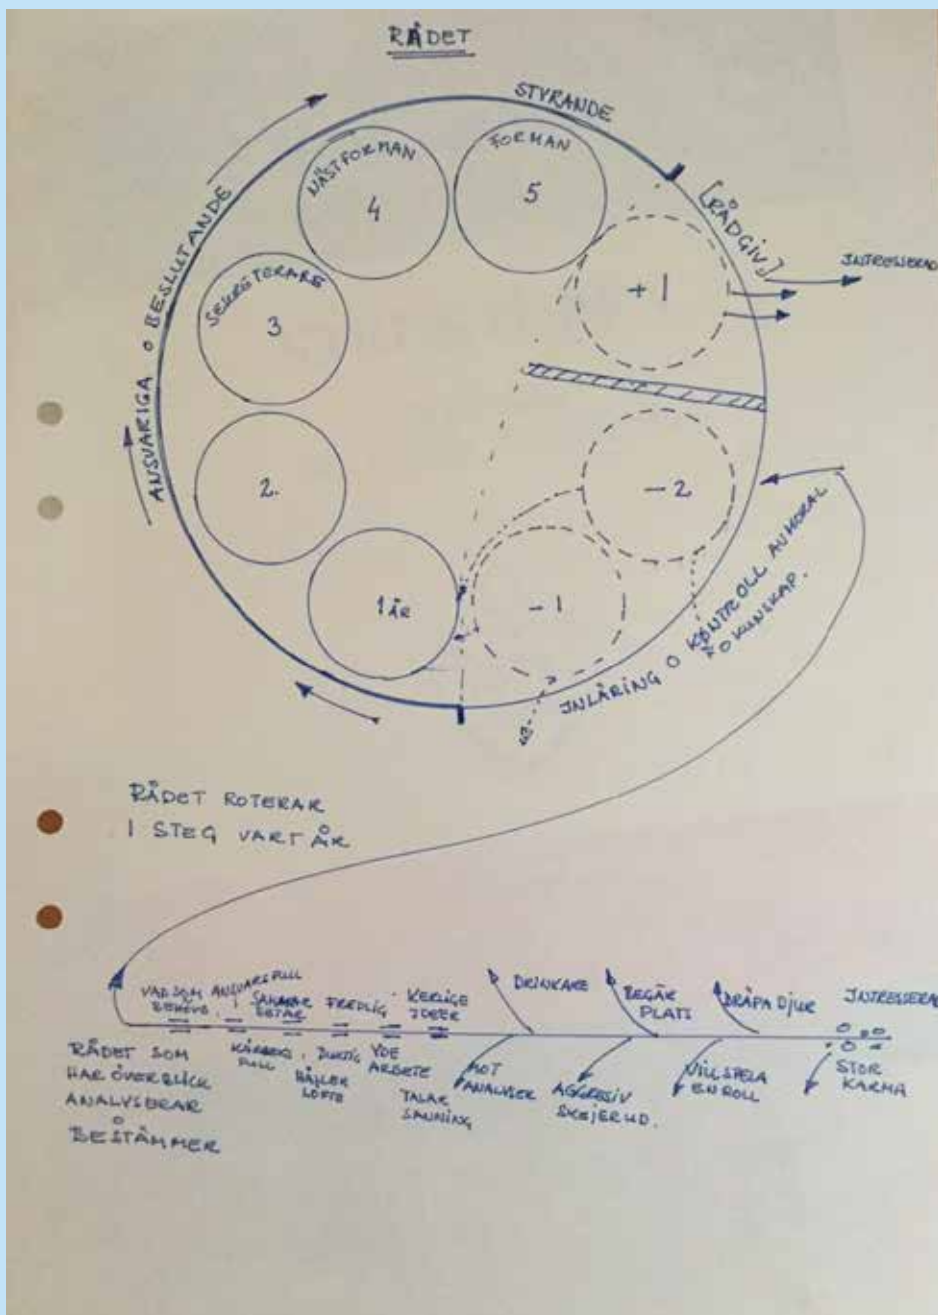 RÅDET
STYRANDE
ANSVARIGA O BESLUTANDE
[RÅDGIV]
INTRESSERAD
FORMAN
5
NÄSTFORMAN
4
SEKRETERARE
3
2.
1 ÅR
-1
-2
+1
INLÄRING O KONTROLL AV MORAL
O KUNSKAP.
RÅDET ROTERAR
1 STEG VART ÅR
VAD SOM
BEHÖVS
ANSVARSFULL
FREDLIG
IDEER
DRINKARE
BEGÄR
PLATS
DRÄPA DJUR
INTRESSERAD
RÅDET SOM
HAR ÖVERBLICK
ANALYSERAR
O
BESTÄMMER
FULL
DUKTIG
HÅLLER
LÖFTE
ARBETE
TALAR
SANNING
MOT
ANALYSER
AGGRESSIV
VILL SPELA
EN ROLL
STOR
KARMA